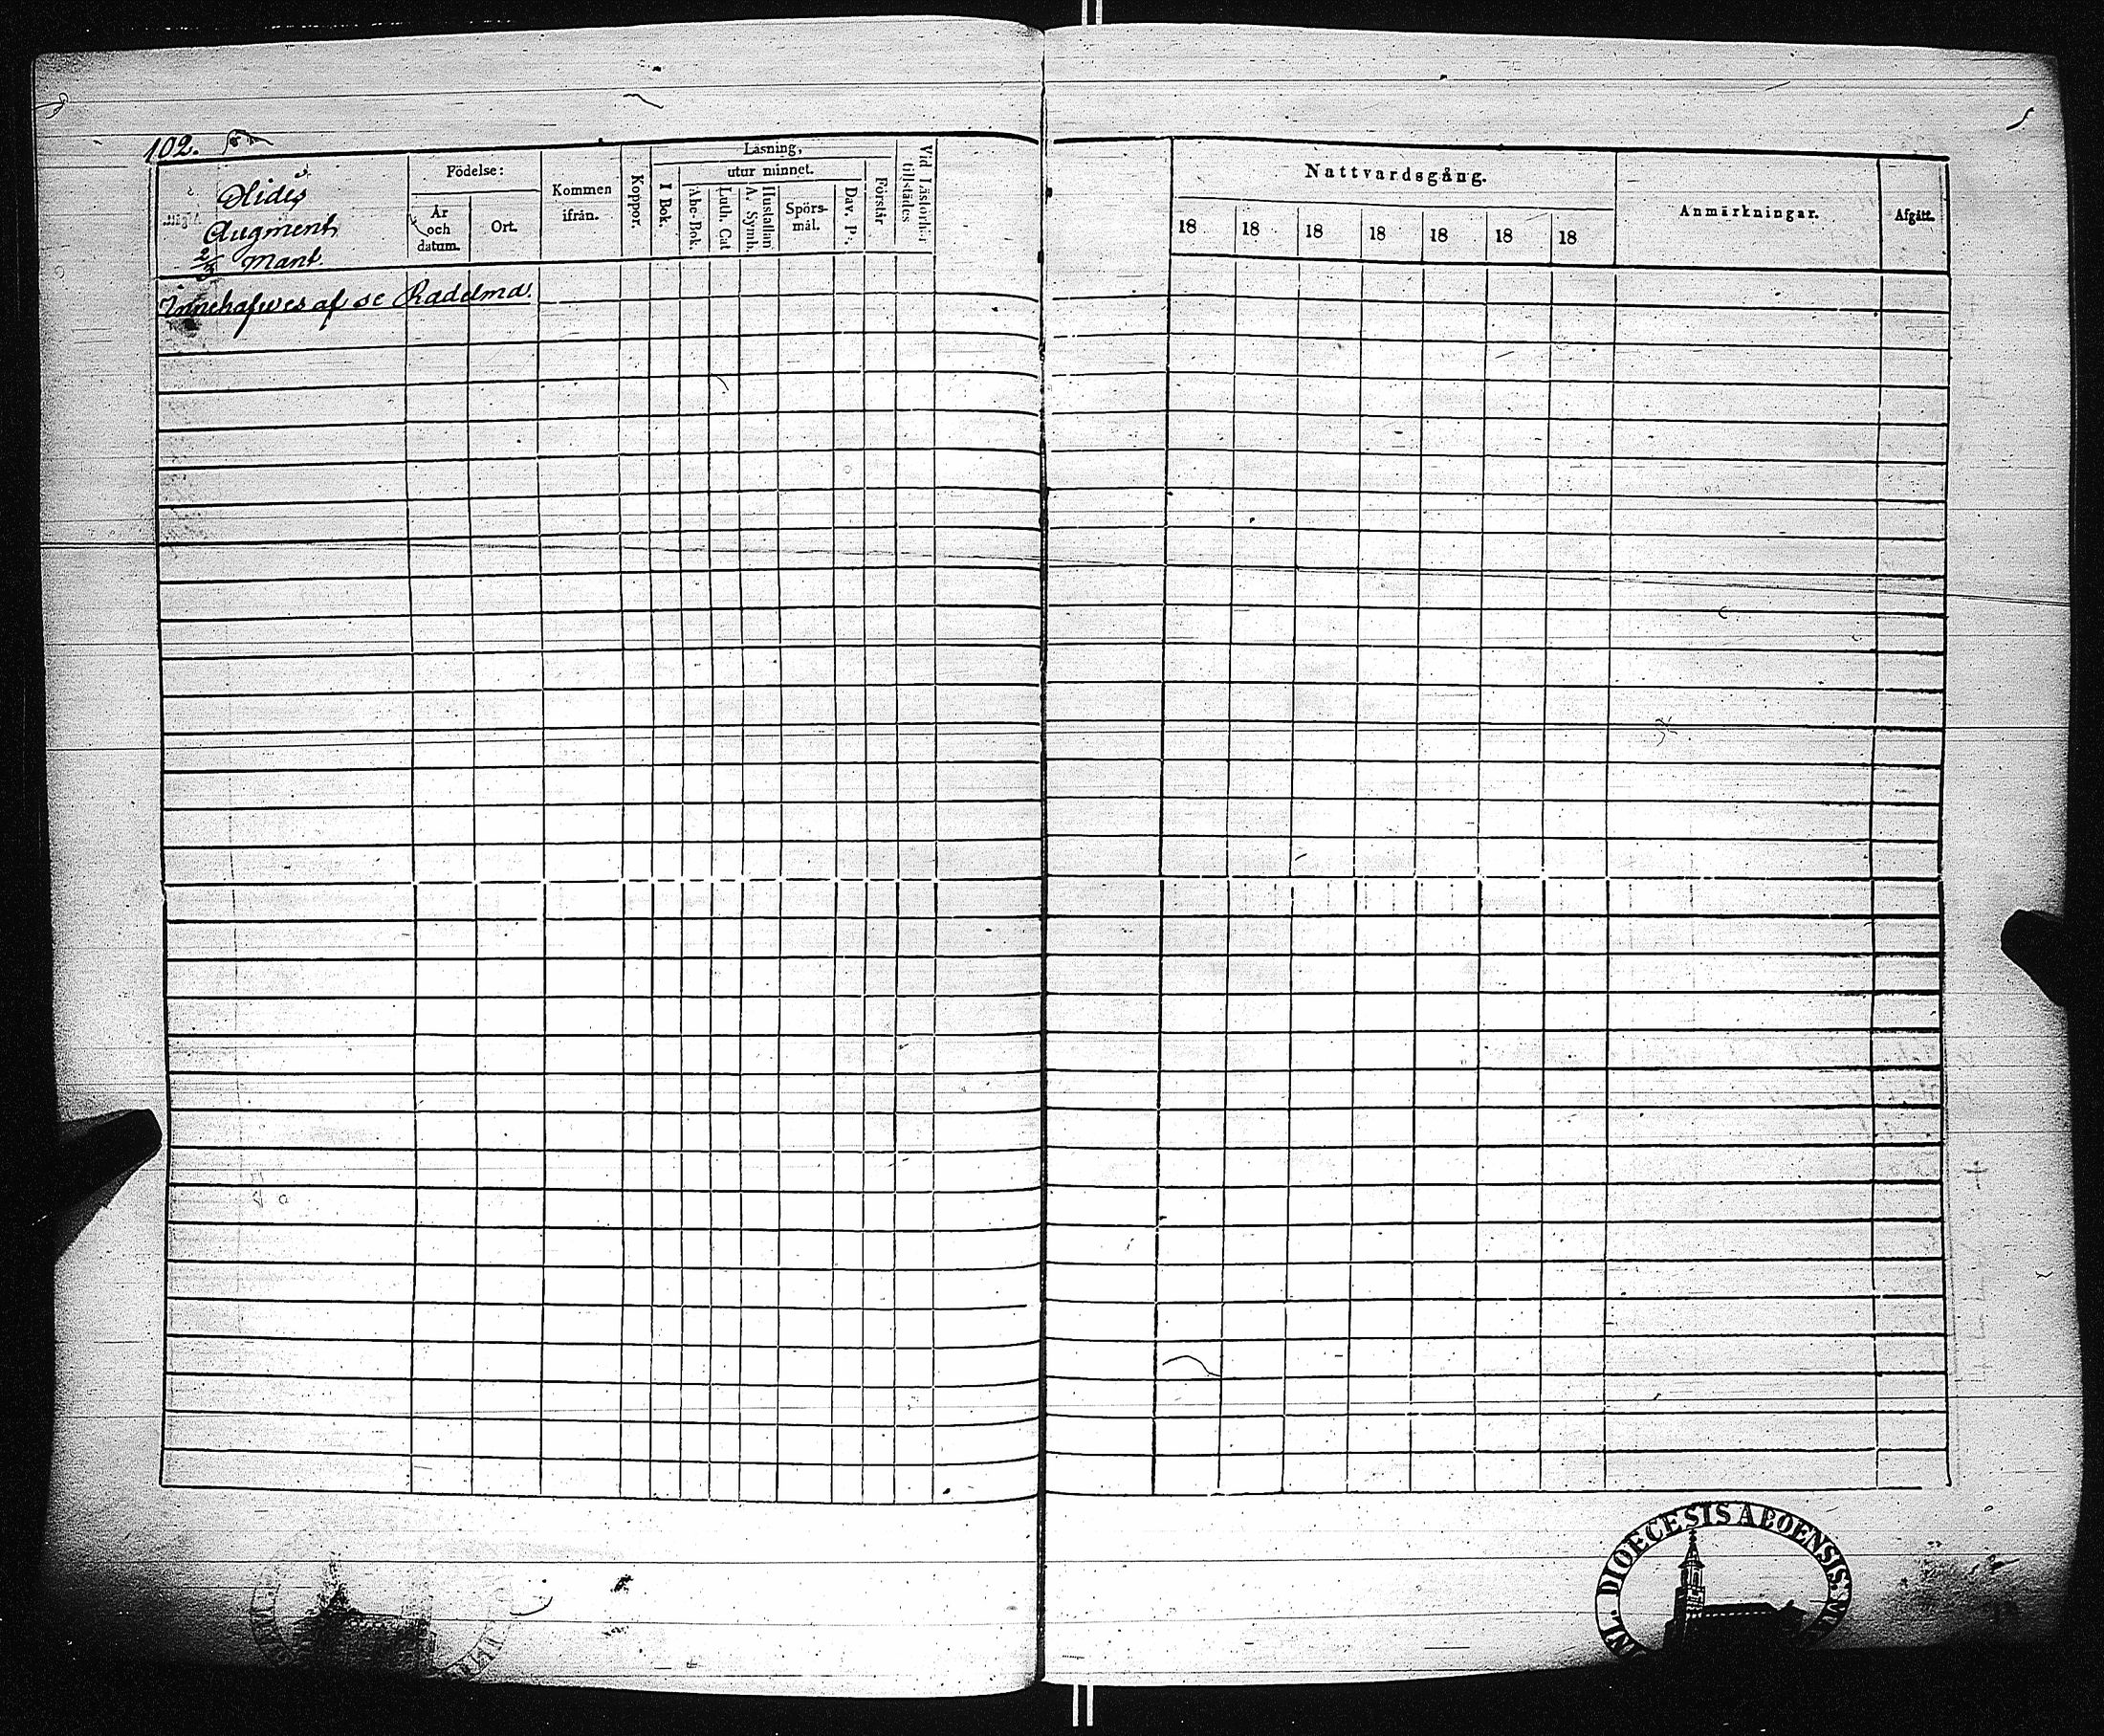 102.
Hidis
Augment,
2/3 Mant.
Födelse:
År och datum.
Ort.
Kommen ifrån.
Koppor.
Läsning,
I Bok.
utur minnet.
Abc-Bok.
Luth. Cat
A. Symb.
Hustaflan
Spörs-mål.
Dav. Ps.
Förstår
Vid Läsförhör tillstädes
Innehafwes af se Radelma.
Nattvardsgång.
18 18 18 18 18 18 18
Anmärkningar.
Afgått.
DIOECESIS ABOENSIS.